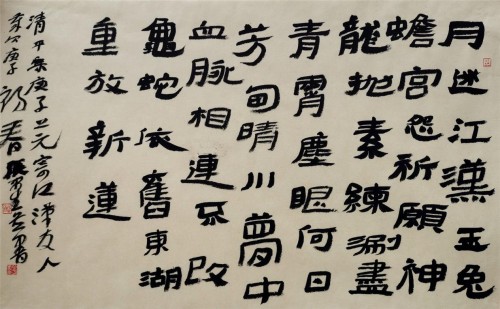 月迷江漢玉兔
蟾宮怨祈願神
龍抛素練涮盡
青霄塵眼何日
芳甸晴川夢中
血脈相連不改
龜蛇依舊東湖
重放新蓮
清平樂庚子上元寄江漢友人
庚子初春